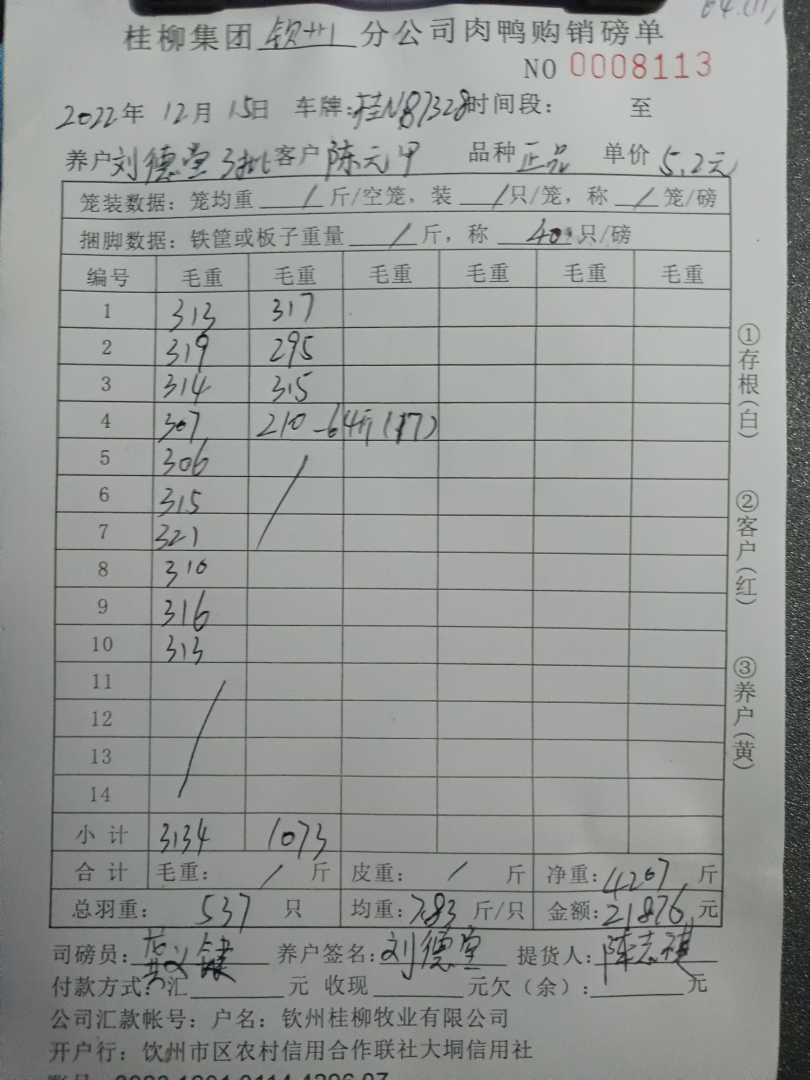 桂柳集团 钦州 分公司肉鸭购销磅单
NO 0008113
2022年 12月 15日 车牌:桂N87328 时间段: 至
养户 刘德堂3批 客户 陈元甲 品种 正品 单价 5.2元
笼装数据: 笼均重 / 斤/空笼, 装 / 只/笼, 称 / 笼/磅
捆脚数据: 铁筐或板子重量 / 斤, 称 40 只/磅
编号 毛重 毛重 毛重 毛重 毛重 毛重
1 313 317
2 319 295
3 314 315
4 307 210-64斤(17)
5 306 /
6 315
7 321
8 310
9 316
10 313
11 /
12
13
14
小计 3134 1073
合计 毛重: / 斤 皮重: / 斤 净重: 4207 斤
总羽重: 537 只 均重: 7.83 斤/只 金额: 21876 元
司磅员: 养户签名: 刘德堂 提货人: 陈志
付款方式: 汇 元 收现 元欠(余): 元
公司汇款帐号: 户名: 钦州桂柳牧业有限公司
开户行: 钦州市区农村信用合作联社大垌信用社
①存根(白)
②客户(红)
③养户(黄)